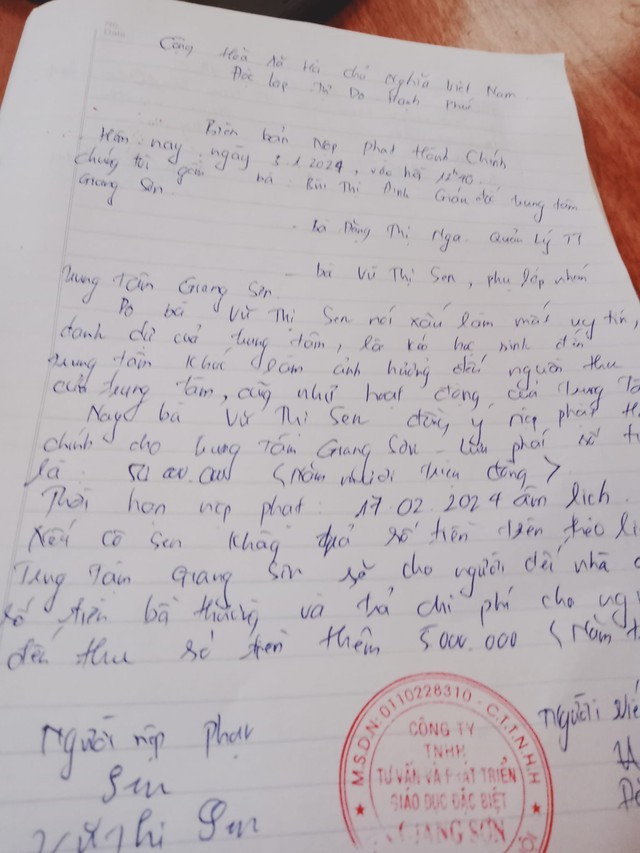 Cộng Hoà Xã Hội chủ Nghĩa Việt Nam
Độc lập Tự Do Hạnh Phúc
Biên bản Nộp phạt Hành Chính
Hôm nay ngày 3.1.2024, vào hồi 12h40.
chúng tôi gồm bà Bùi Thị Dinh Giám đốc trung tâm
Giang Sơn
- Bà Đồng Thị Nga Quản Lý TT
- bà Vũ Thị Sen, phụ lớp nhóm
trung tâm Giang Sơn
Do bà Vũ Thị Sen nói xấu làm mất uy tín,
danh dự của trung tâm, lôi kéo học sinh đến
trung tâm khác làm ảnh hưởng đến người thu
của trung tâm, cũng như hoạt động của trung tâ
Nay bà Vũ Thị Sen đồng ý nộp phạt h
chính cho trung tâm Giang Sơn số t
là 50.000.000 (Năm mươi triệu đồng)
Thời hạn nộp phạt 17.02.2024 âm lịch
Nếu cô Sen không trả số tiền trên theo lị
Trung tâm Giang Sơn sẽ cho người đến nhà
số tiền bồi thường và trả chi phí cho ng
đến thu số tiền thêm 5.000.000 (Năm t
Người nộp phạt
Sen
Vũ Thị Sen
Người viế
M.S.D.N: 0110228310 - C.T.T.N.H.H
CÔNG TY
TNHH
TƯ VẤN VÀ PHÁT TRIỂN
GIÁO DỤC ĐẶC BIỆT
GIANG SƠN